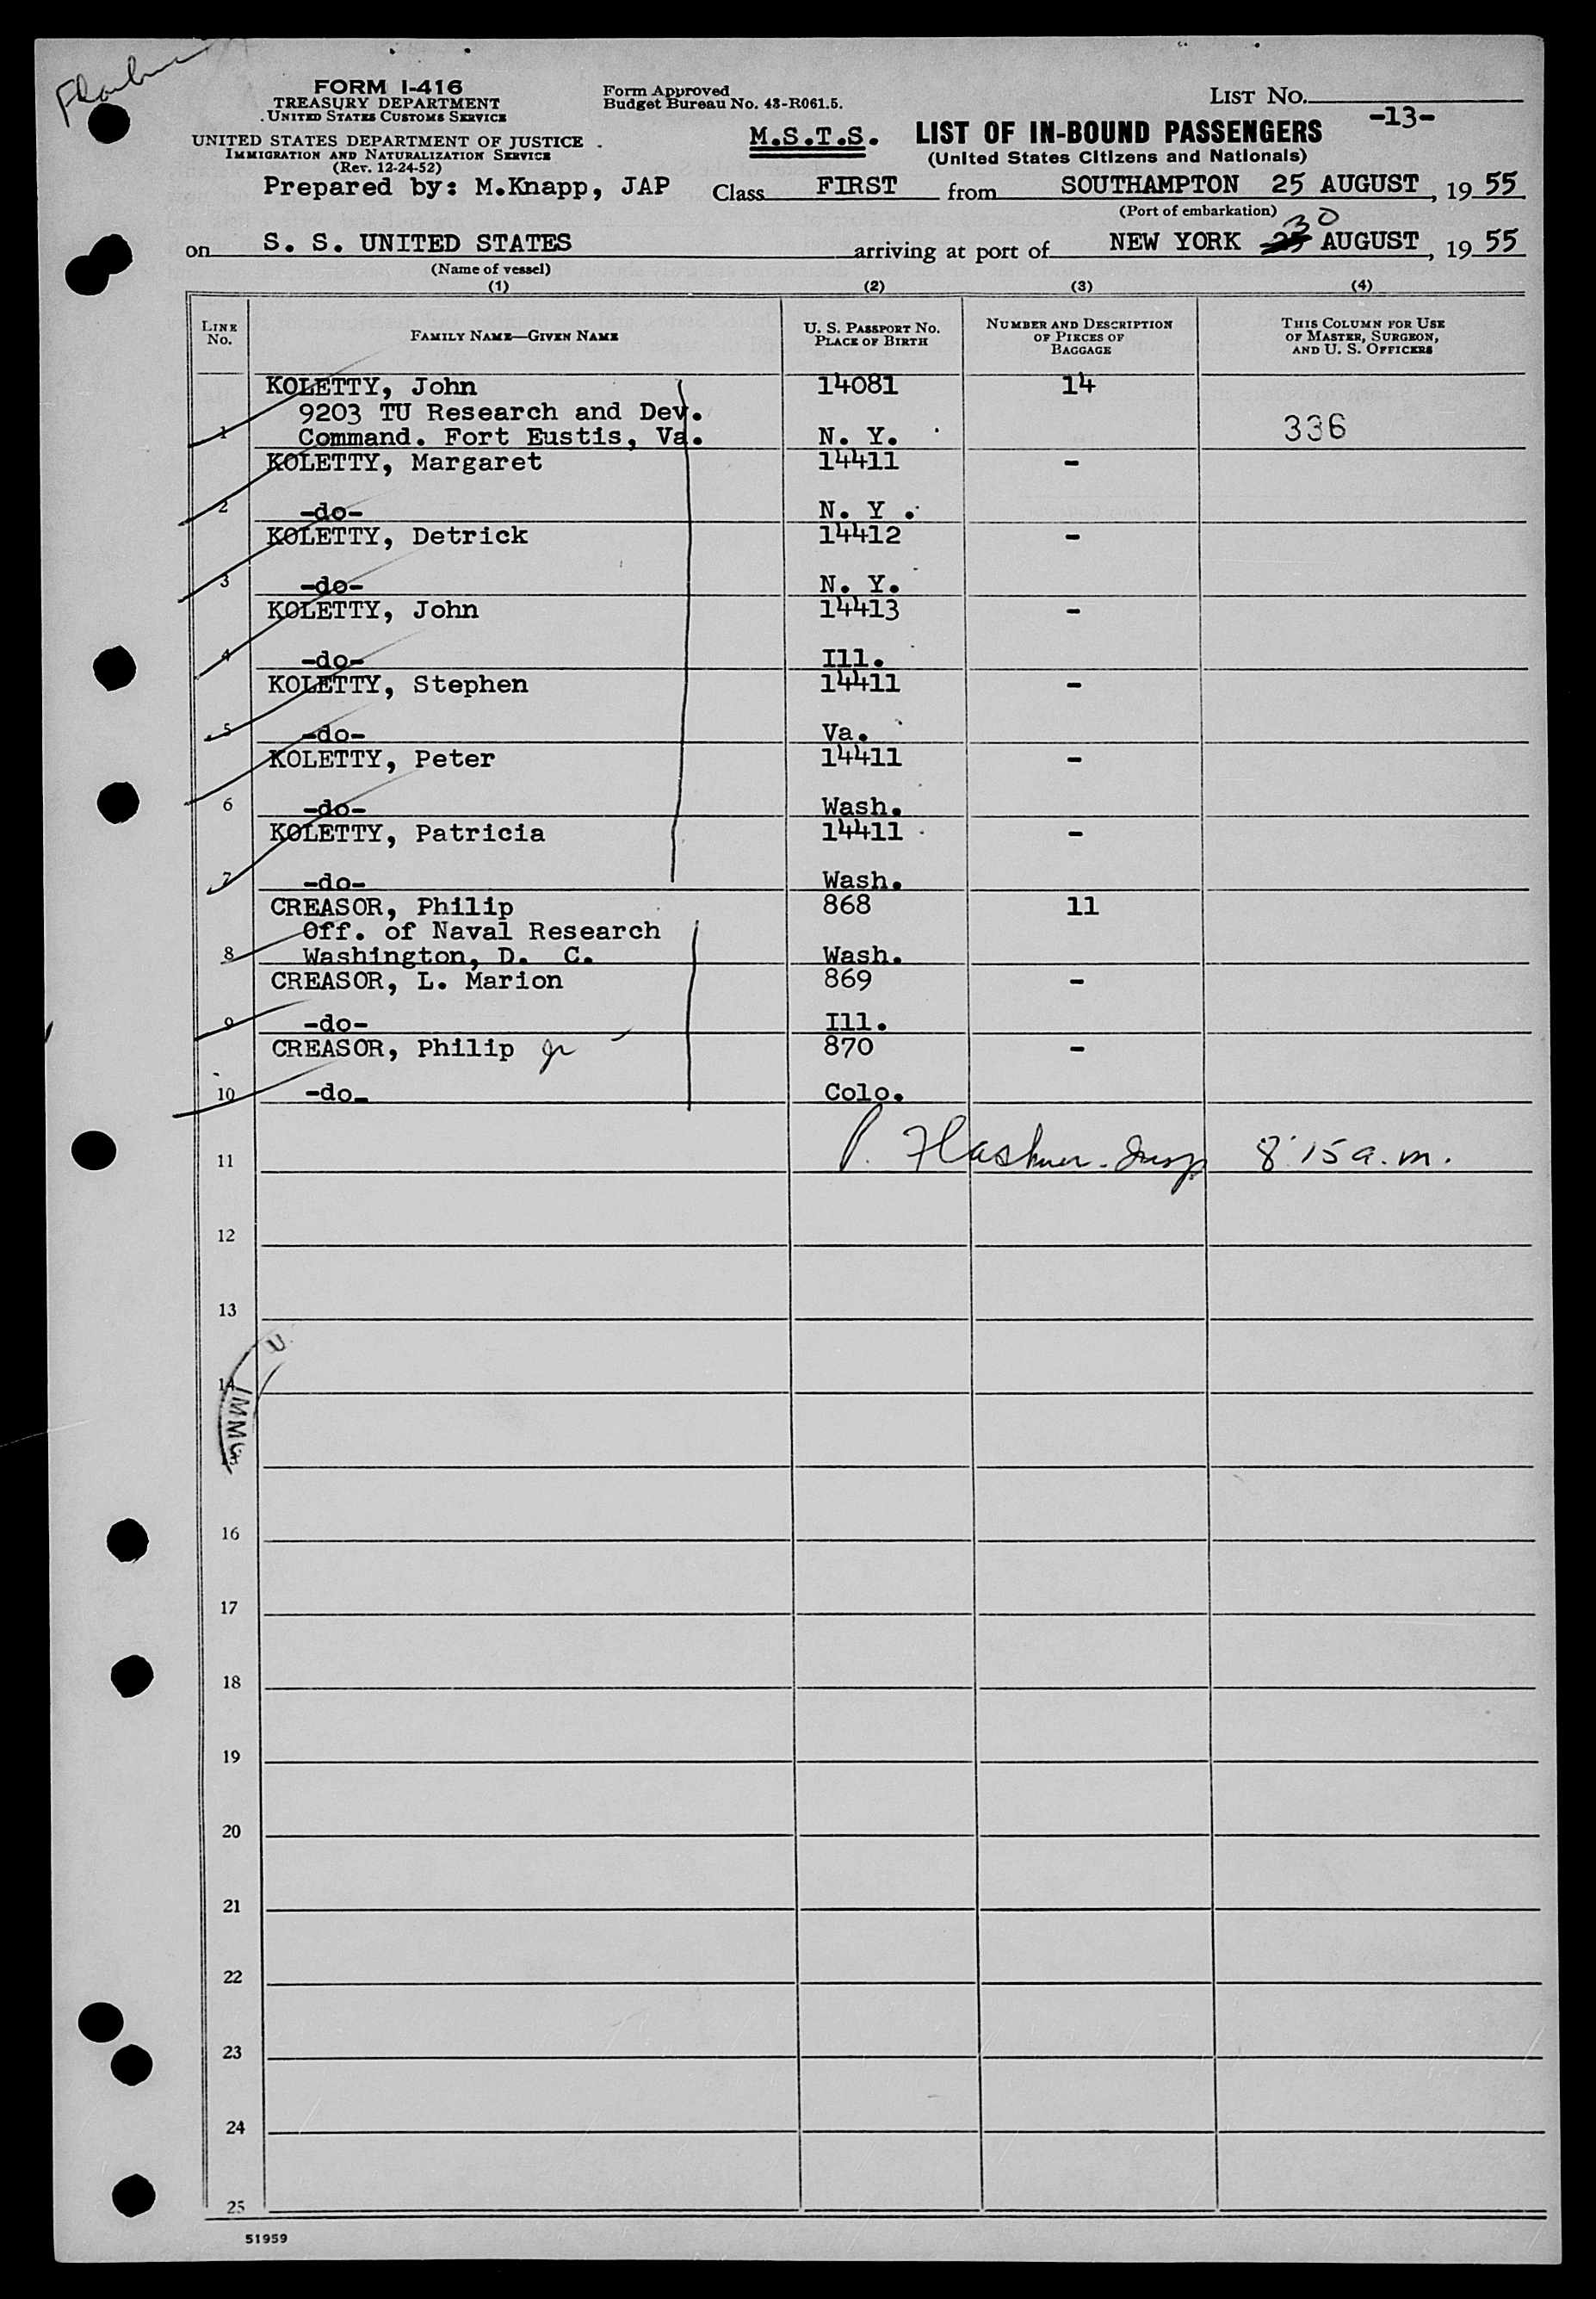 Flashner
FORM I-416
TREASURY DEPARTMENT
UNITED STATES CUSTOMS SERVICE
UNITED STATES DEPARTMENT OF JUSTICE
IMMIGRATION AND NATURALIZATION SERVICE
(Rev. 12-24-52)
Prepared by: M.Knapp, JAP
Form Approved
Budget Bureau No. 43-R061.5.
LIST NO.
-13-
M.S.T.S. LIST OF IN-BOUND PASSENGERS
(United States Citizens and Nationals)
Class FIRST from SOUTHAMPTON 25 AUGUST, 19 55
(Port of embarkation)
on S. S. UNITED STATES arriving at port of NEW YORK 30 AUGUST, 19 55
(Name of vessel)
(1) (2) (3) (4)
LINE NO. FAMILY NAME—GIVEN NAME U. S. PASSPORT NO. PLACE OF BIRTH NUMBER AND DESCRIPTION OF PIECES OF BAGGAGE THIS COLUMN FOR USE OF MASTER, SURGEON, AND U. S. OFFICERS
KOLETTY, John 14081 14
9203 TU Research and Dev. 336
1 Command. Fort Eustis, Va. N. Y.
KOLETTY, Margaret 14411 -
2 -do- N. Y .
KOLETTY, Detrick 14412 -
3 -do- N. Y.
KOLETTY, John 14413 -
4 -do- Ill.
KOLETTY, Stephen 14411 -
5 -do- Va.
KOLETTY, Peter 14411 -
6 -do- Wash.
KOLETTY, Patricia 14411 -
7 -do- Wash.
CREASOR, Philip 868 11
Off. of Naval Research
8 Washington, D. C. Wash.
CREASOR, L. Marion 869 -
9 -do- Ill.
CREASOR, Philip Jr 870 -
10 -do- Colo.
11 P. Flashner - Insp 8:15 a.m.
12
13
U
14
IMMG
16
17
18
19
20
21
22
23
24
25
51959